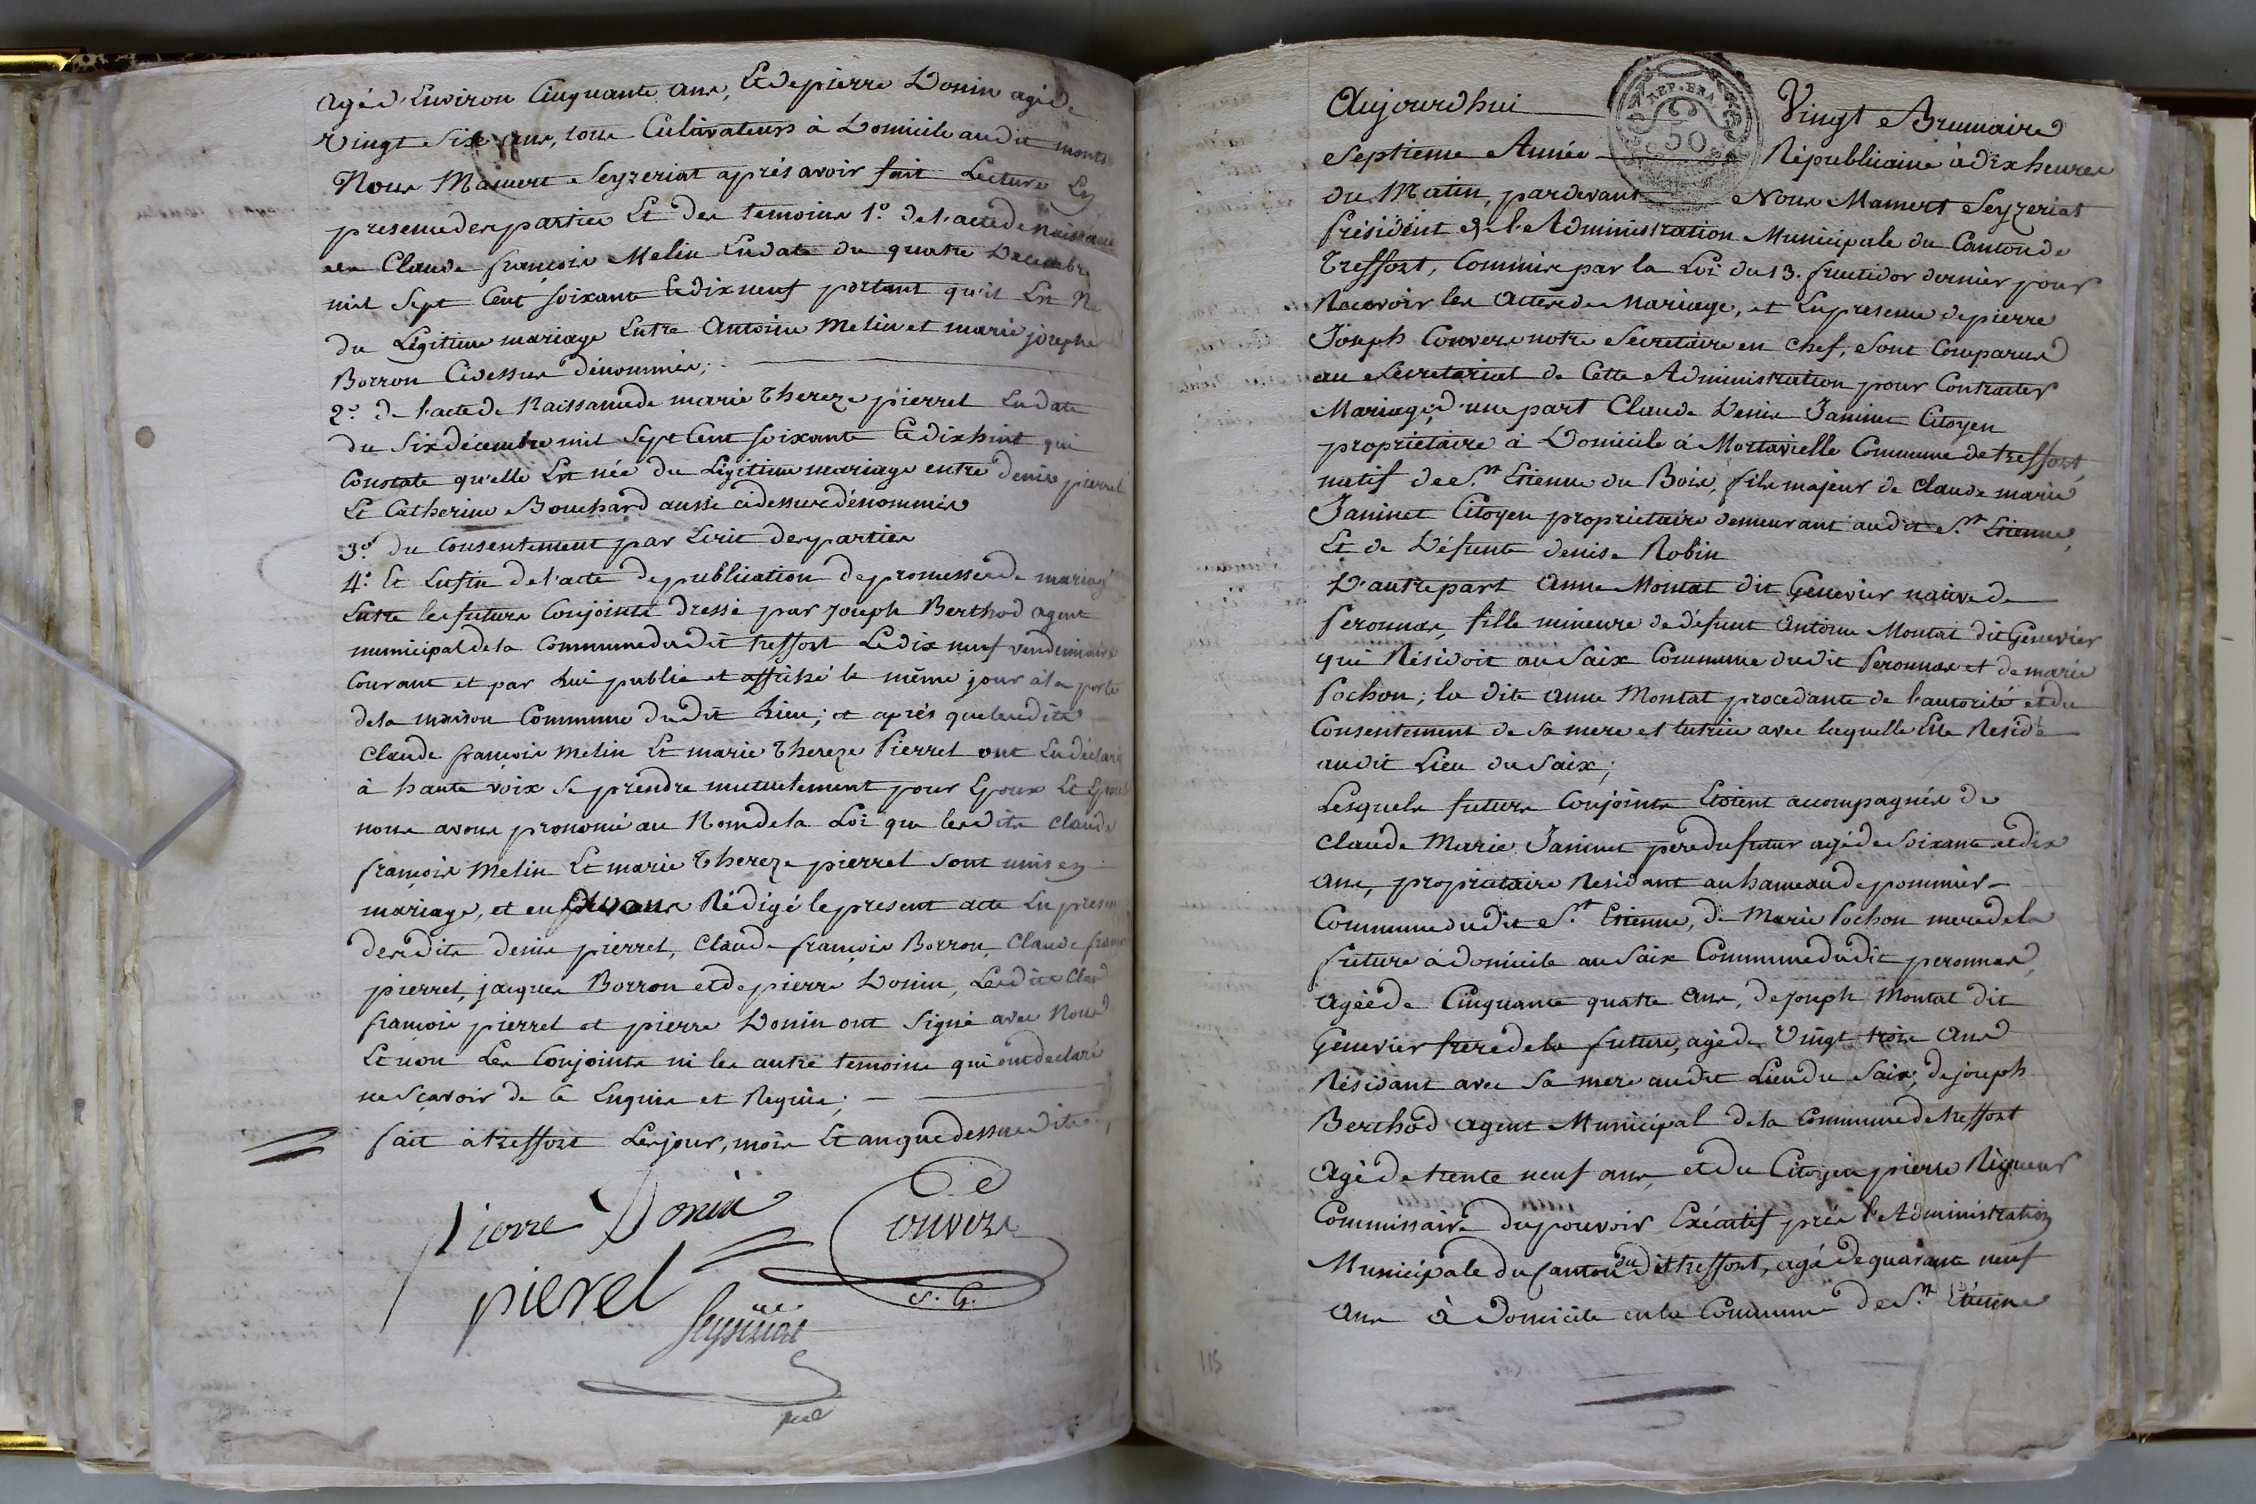 agé d'Environ Cinquante ans, Et de pierre Donin agé de
Vingt Six ans, tous Cultivateurs à Domicile audit
Nous Mamert Seyzeriat aprés avoir fait Lecture En
presence des parties Et des temoins 1.° de l'acte de Naissance
de Claude françois Melin En date du quatre Decembre
mil Sept Cent soixante Et dix neuf portant qu'il Est Né
du Légitime mariage Entre Antoine Melin et marie josephe
Borron Cidessus dénommés;
2.° de l'acte de Naissance de marie Thereze pierrel En date
du Six décembre mil Sept Cent soixante Et dix huit qui
Constate qu'elle Est née du Légitime mariage entre denis pierrel
Et Catherine Bouchard aussi cidessus dénommés
3.° du Consentement par Ecrit des parties
4.° Et Enfin de l'acte de publication de promesses de mariage
Entre les futurs Conjoints dressé par Joseph Berthod agent
municipal de la Commune dudit treffort Le dix neuf vendemiaire
Courant et par Lui publié et affiché le même jour à la porte
de la maison Commune dudit Lieu; et aprés que lesdits
Claude françois Melin Et marie Thereze Pierrel ont Eu déclaré
à haute voix Se prendre mutuelement pour Epoux Et Epouse
nous avons prononcé au Nom de la Loi que lesdits Claude
françois Melin Et marie Thereze pierrel sont unis en
mariage, et en avons Rédigé le present acte En presence
desdits denis pierrel, Claude françois Borron, Claude françois
pierrel, jacques Borron et de pierre Donin, Lesdits Claude
françois pierrel et pierre Donin ont Signé avec Nous
Et non Les Conjoints ni les autre temoins qui ont declaré
ne Sçavoir de ce Enquis et Requis;
fait à treffort Les jour, mois Et an que dessus dits
Pierre Donin
Couvers
S. G.
pierel
Seyzeriat
Aujourdhui Vingt Brumaire
REP. FRA.
50
Septieme Année Républicaine à dix heures
du Matin, pardevant Nous Mamert Seyzeriat
Président de l'Administration Municipale du Canton de
Treffort, Commis par la Loi du 13. fructidor dernier pour
Recevoir les Actes de Mariage, et En presence de pierre
Joseph Couvers notre Secretaire en chef, Sont Comparus
au Secretariat de Cette Administration pour Contracter
Mariage, d'une part Claude Denis Janinet Citoyen
proprietaire à Domicile à Mortavielle Commune de treffort,
natif de S.nt Etienne du Bois, fils majeur de Claude marie
Janinet Citoyen proprietaire demeurant audit S.nt Etienne,
Et de Défunte denise Robin
D'autre part Anne Montat dit Genevier native de
Peronnas, fille mineure de défunt Antoine Montat dit Genevier
qui Résidoit au Saix Commune dudit Peronnas et de marie
Pochon; la dite Anne Montat procedante de l'autorité et du
Consentement de Sa mere et tutrice avec laquelle Elle Reside
audit Lieu du Saix;
Lesquels futurs Conjoints Etoient accompagnés de
Claude Marie Janinet pere du futur agé de Soixante et dix
ans, proprietaire Residant au hameau de pommier
Commune dudit S.nt Etienne, de Marie Pochon mere de la
future à domicile au Saix Commune dudit peronnas,
agée de Cinquante quatre ans, de joseph Montat dit
Genevier frere de la future, agé de Vingt trois ans
Résidant avec Sa mere audit Lieu du Saix, de joseph
Berthod agent Municipal de la Commune de treffort
agé de trente neuf ans, et du Citoyen pierre Rigueur
Commissaire du pouvoir Exécutif prés l'Administration
Municipale du Canton du dit treffort, agé de quarante neuf
ans à Domicile en la Commune de S.nt Etienne
115